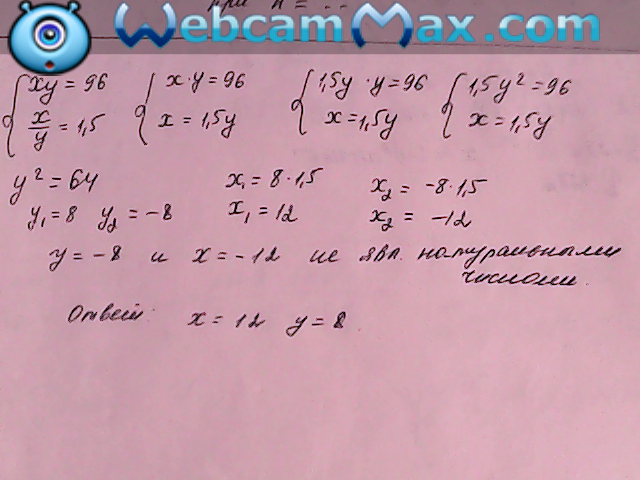 при n = ..
WebcamMax.com
xy = 96
x/y = 1,5
x·y = 96
x = 1,5y
1,5y·y = 96
x = 1,5y
1,5y² = 96
x = 1,5y
y² = 64
y₁ = 8 y₂ = -8
x₁ = 8·1,5
x₁ = 12
x₂ = -8·1,5
x₂ = -12
y = -8 и x = -12 не явл. натуральными
числами.
Ответ: x = 12 y = 8.